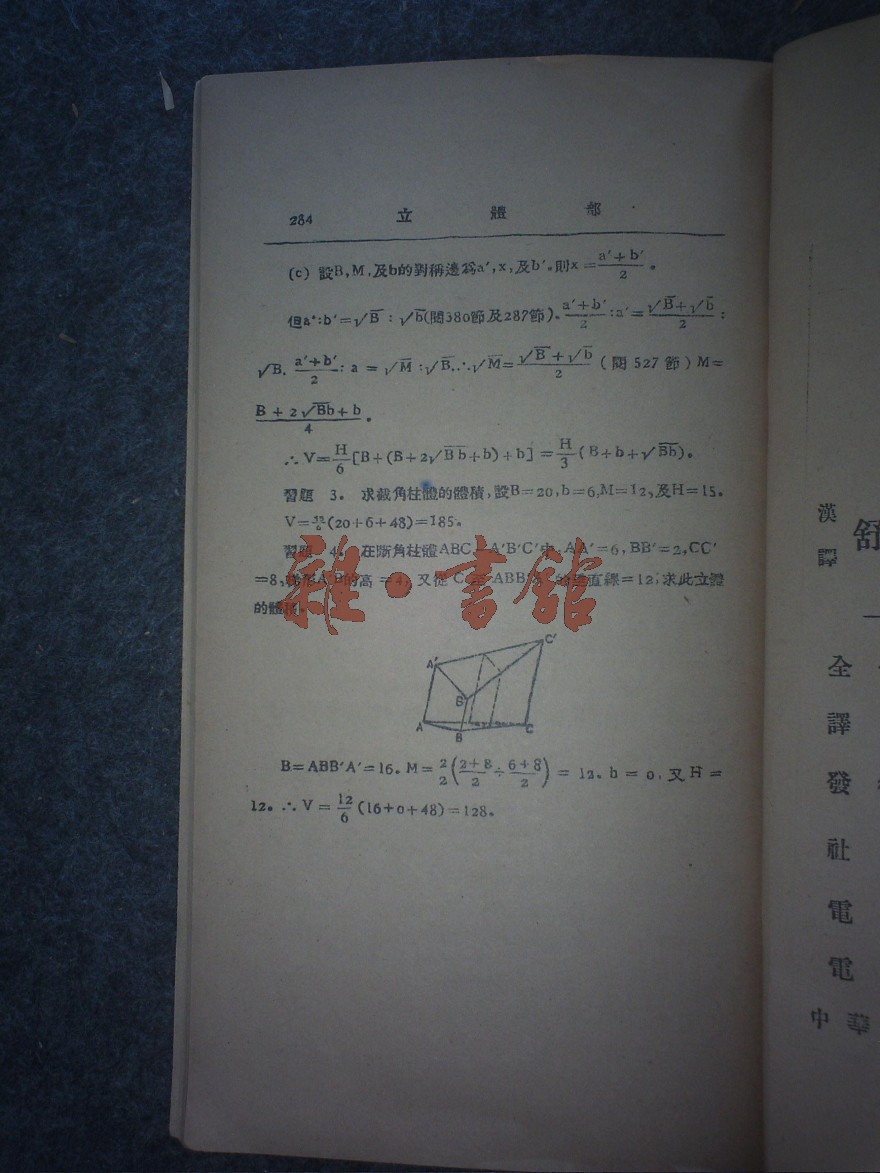 284 立體部
(c) 設B,M,及b的對稱邊爲a′,x,及b′。則x = a′+b′/2 。
但a′:b′=√B : √b(閱380節及287節)。a′+b′/2 :a′= √B+√b/2 :
√B. a′+b′/2 : a = √M :√B.∴√M= √B+√b/2 (閱527節) M=
B + 2√Bb + b/4 。
∴V= H/6 [B+(B+2√Bb+b)+b] = H/3 (B+b+√Bb)。
習題 3。 求截角柱體的體積,設B=20,b=6,M=12,及H=15。
V=15/6(20+6+48)=185。
習題 4。 在斷角柱體ABC—A′B′C′中,AA′=6,BB′=2,CC′
=8,梯形A′B的高=4,又從C至ABB′A′的垂直線=12,求此立體
的體積。
雜·書館
A′ C′ B′ A B C
B=ABB′A′=16。M= 2/2 (2+8/2 ÷ 6+8/2) = 12。b = 0,又H =
12。∴V = 12/6 (16+0+48)=128。
漢譯
舒
全
譯
發
社
電
電
中華